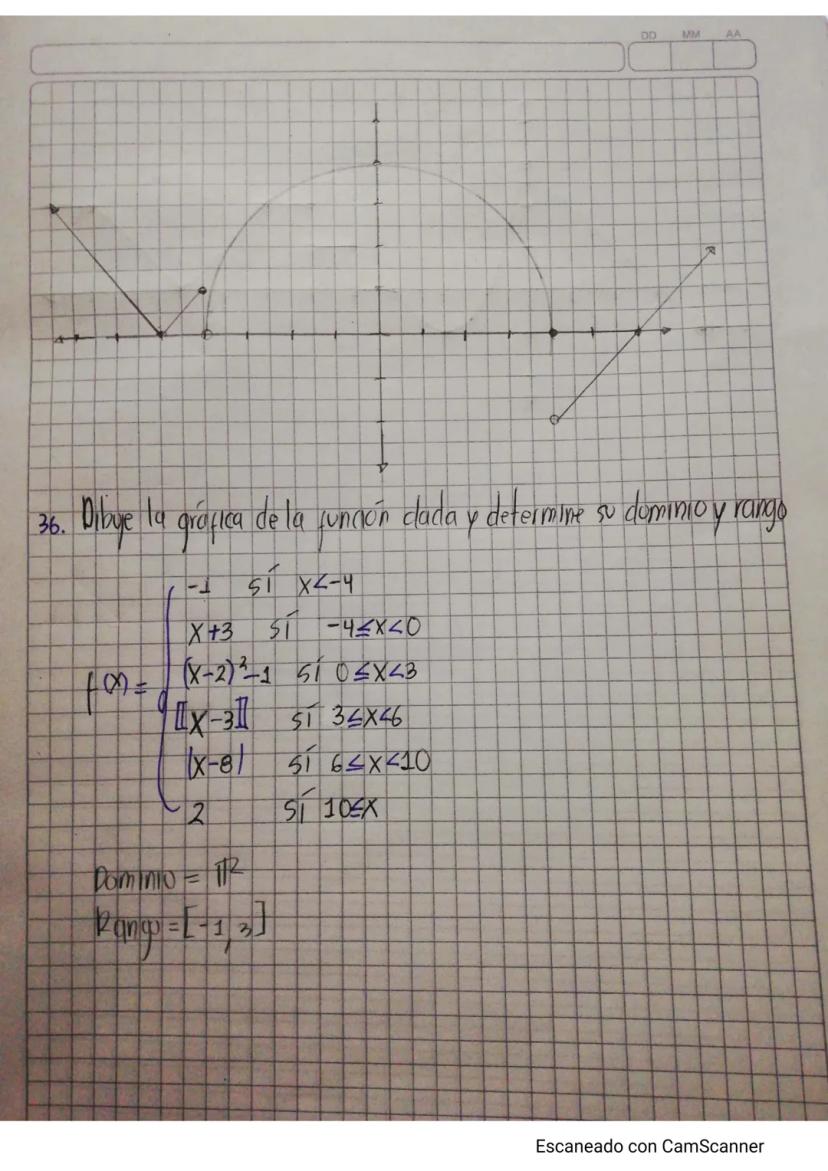 DD MM AA
36. Dibuje la gráfica de la función dada y determine su dominio y rango
-1 sí x<-4
x+3 sí -4≤x<0
f(x)= (x-2)²-1 sí 0≤x<3
⟦x-3⟧ sí 3≤x<6
|x-8| sí 6≤x<10
2 sí 10≤x
Dominio = ℝ
Rango = [-1,3]
Escaneado con CamScanner